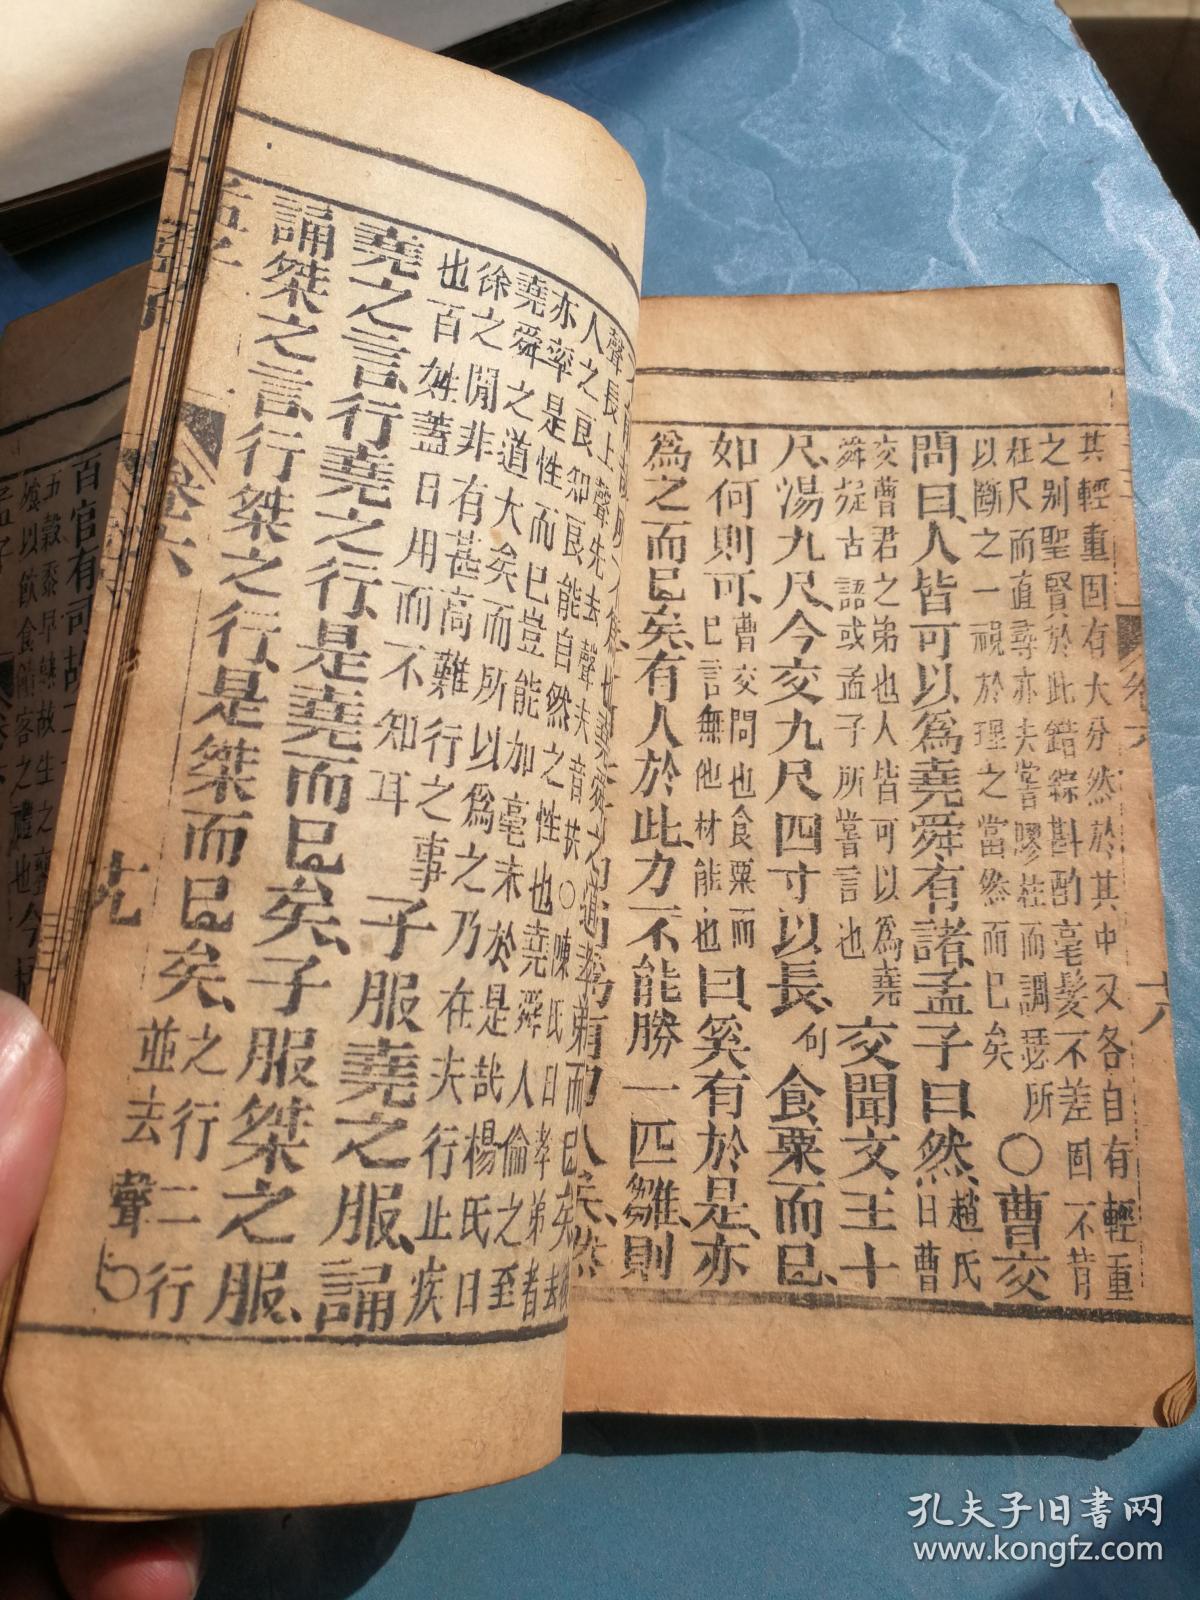 其輕重固有大分然於其中又各自有輕重
之别聖賢於此錯綜斟酌毫髮不差固不肯
枉尺而直尋亦未嘗膠柱而調瑟所
以斷之一視於理之當然而已矣
〇曹交
問曰人皆可以爲堯舜有諸孟子曰然
趙氏
曰曹
交曹君之弟也人皆可以爲堯
舜疑古語或孟子所嘗言也
交聞文王十
尺湯九尺今交九尺四寸以長
句
食粟而已
如何則可
曹交問也食粟而
已言無他材能也
曰奚有於是亦
爲之而已矣有人於此力不能勝一匹雛則
聲長上聲先去聲夫音扶〇陳氏曰孝弟者
人之良知良能自然之性也堯舜人倫之至
亦率是性而已豈能加毫末於是哉楊氏曰
堯舜之道大矣而所以爲之乃在夫行止疾
徐之閒非有甚高難行之事
也百姓蓋日用而不知耳
子服堯之服誦
堯之言行堯之行是堯而已矣子服桀之服
誦桀之言行桀之行是桀而已矣
之行二行
並去聲〇
孟子
卷六
百官有司故二十
五穀黍早熟故生之饔
飧以飲食饋客之禮也今
孔夫子旧书网
www.kongfz.com